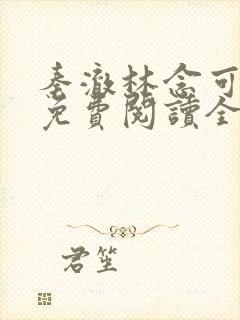 秦澈林念可
免費閱讀全
君笙